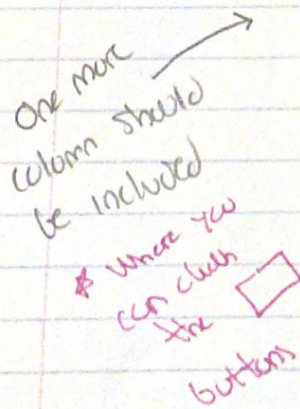 One more
column should
be included
* where you
can check
the
buttons